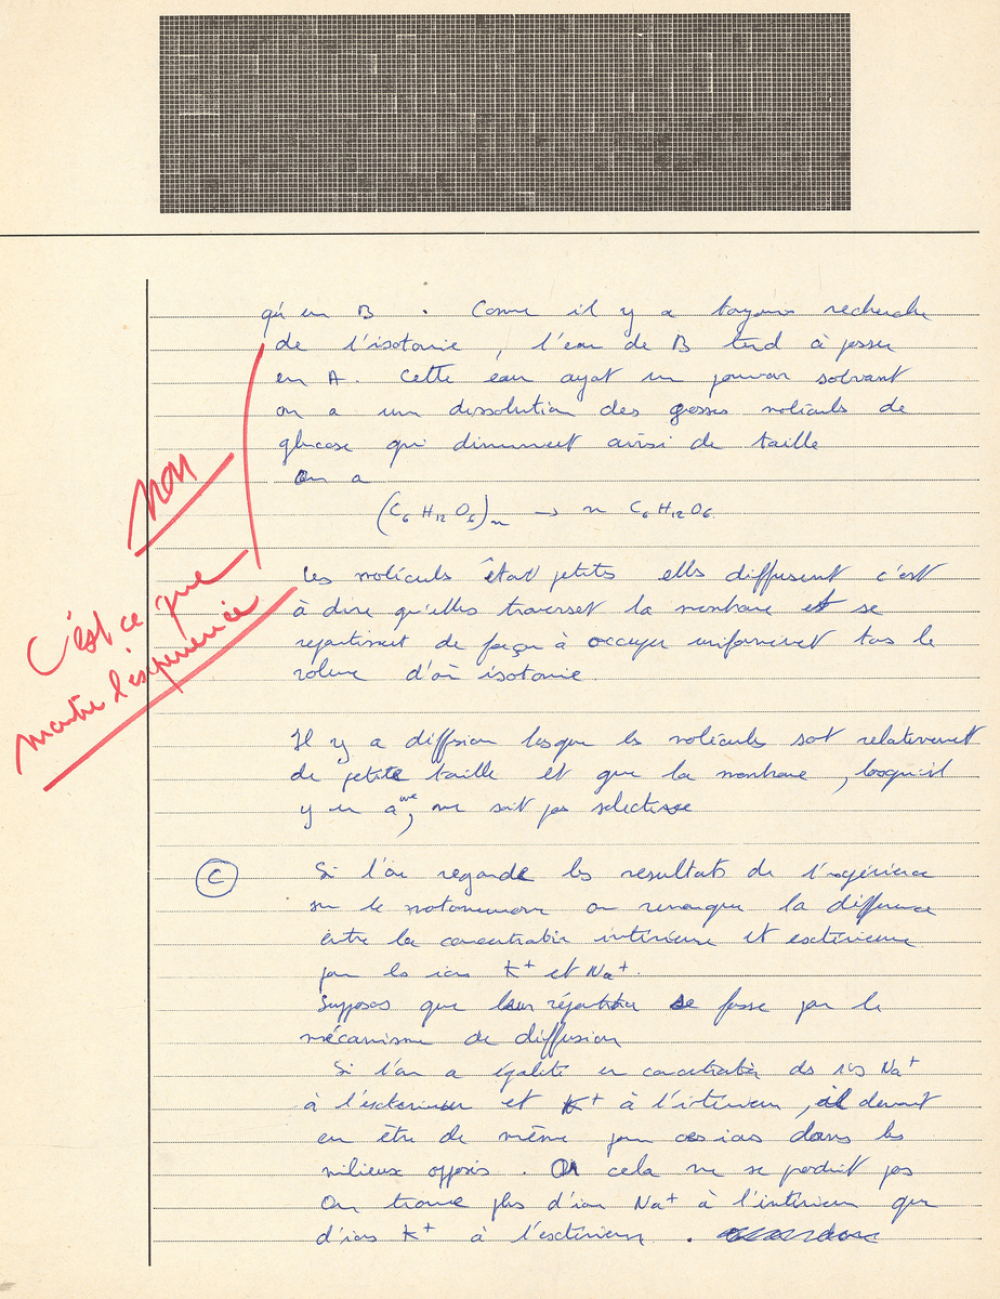 qu'en B. Comme il y a toujours recherche
de l'isotonie, l'eau de B tend à passer
en A. Cette eau ayant un pouvoir solvant
on a une dissolution des grosses molécules de
glucose qui diminuent ainsi de taille
On a
(C6 H12 O6)n → n C6 H12 O6
non
Les molécules étant petites elles diffusent c'est
à dire qu'elles traversent la membrane et se
répartissent de façon à occuper uniformément tous le
volume d'où isotonie.
C'est ce que
montre l'expérience
Il y a diffusion lorsque les molécules sont relativement
de petite taille et que la membrane, lorsqu'il
y en a une, ne soit pas sélective
C Si l'on regarde les resultats de l'expérience
sur le on remarque la différence
entre la concentration intérieure et extérieure
pour les ions K+ et Na+.
Supposons que leur répartition se fasse par le
mécanisme de diffusion
Si l'on a égalité en concentration des ions Na+
à l'extérieur et K+ à l'intérieur, il devrait
en être de même pour ces ions dans les
milieux opposés. Or cela ne se produit pas
On trouve plus d'ions Na+ à l'intérieur que
d'ions K+ à l'extérieur.